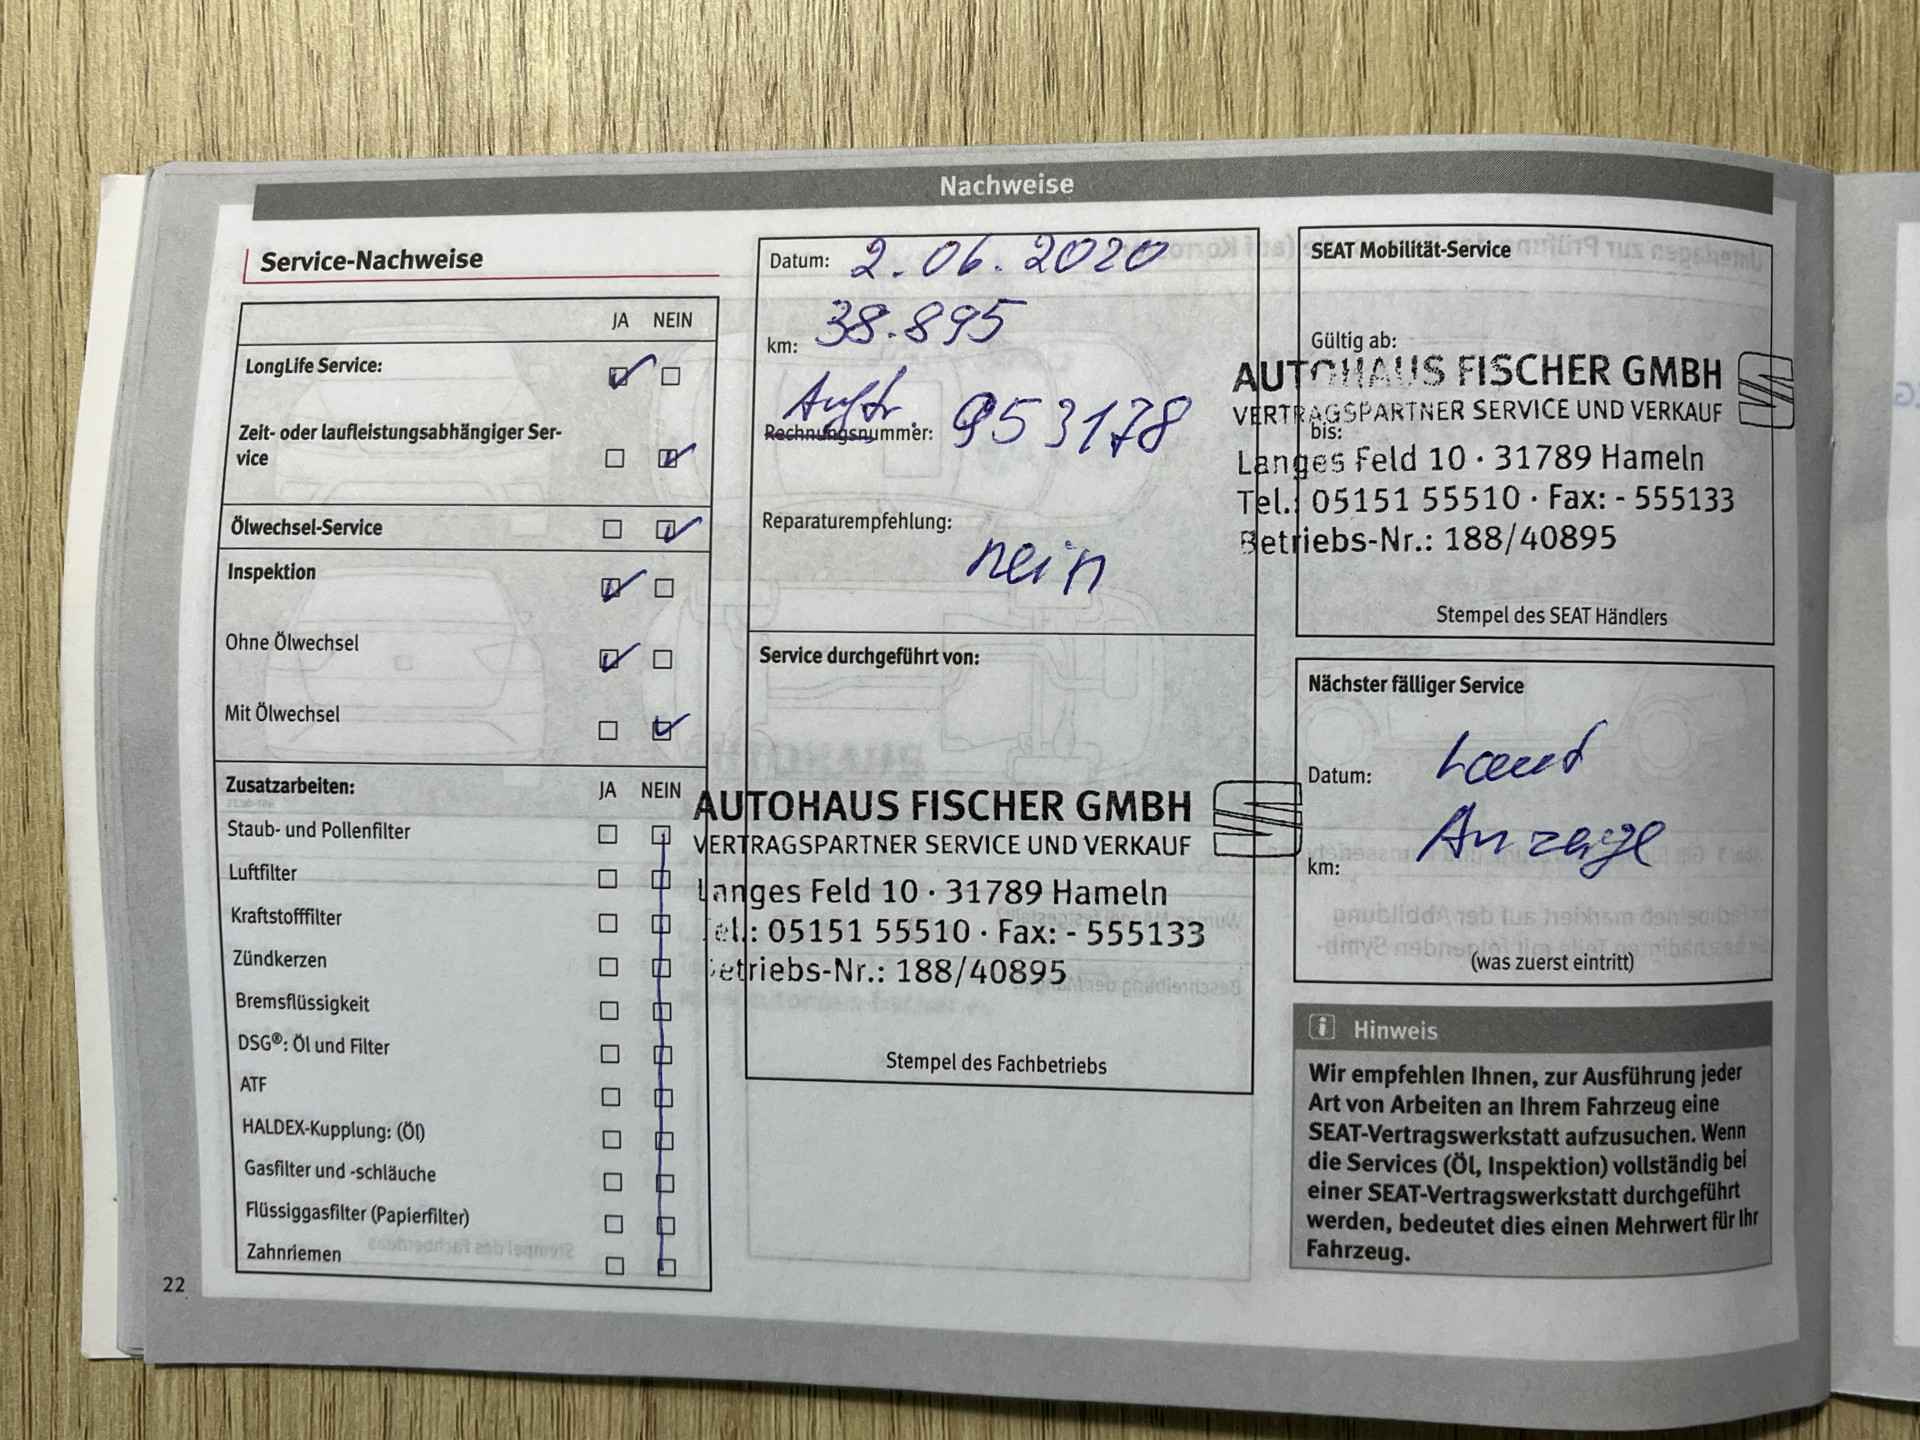 Nachweise
Service-Nachweise
JA NEIN
LongLife Service:
Zeit- oder laufleistungsabhängiger Ser-
vice
Ölwechsel-Service
Inspektion
Ohne Ölwechsel
Mit Ölwechsel
Zusatzarbeiten: JA NEIN
Staub- und Pollenfilter
Luftfilter
Kraftstofffilter
Zündkerzen
Bremsflüssigkeit
DSG®: Öl und Filter
ATF
HALDEX-Kupplung: (Öl)
Gasfilter und -schläuche
Flüssiggasfilter (Papierfilter)
Zahnriemen
22
Datum: 2.06.2020
km: 38.895
Auftr.
Rechnungsnummer: 953178
Reparaturempfehlung:
nein
Service durchgeführt von:
AUTOHAUS FISCHER GMBH
VERTRAGSPARTNER SERVICE UND VERKAUF
Langes Feld 10 · 31789 Hameln
Tel.: 05151 55510 · Fax: - 555133
Betriebs-Nr.: 188/40895
Stempel des Fachbetriebs
SEAT Mobilität-Service
Gültig ab:
AUTOHAUS FISCHER GMBH
VERTRAGSPARTNER SERVICE UND VERKAUF
bis:
Langes Feld 10 · 31789 Hameln
Tel.: 05151 55510 · Fax: - 555133
Betriebs-Nr.: 188/40895
Stempel des SEAT Händlers
Nächster fälliger Service
Datum: Laut
Anzeige
km:
(was zuerst eintritt)
Hinweis
Wir empfehlen Ihnen, zur Ausführung jeder
Art von Arbeiten an Ihrem Fahrzeug eine
SEAT-Vertragswerkstatt aufzusuchen. Wenn
die Services (Öl, Inspektion) vollständig bei
einer SEAT-Vertragswerkstatt durchgeführt
werden, bedeutet dies einen Mehrwert für Ihr
Fahrzeug.